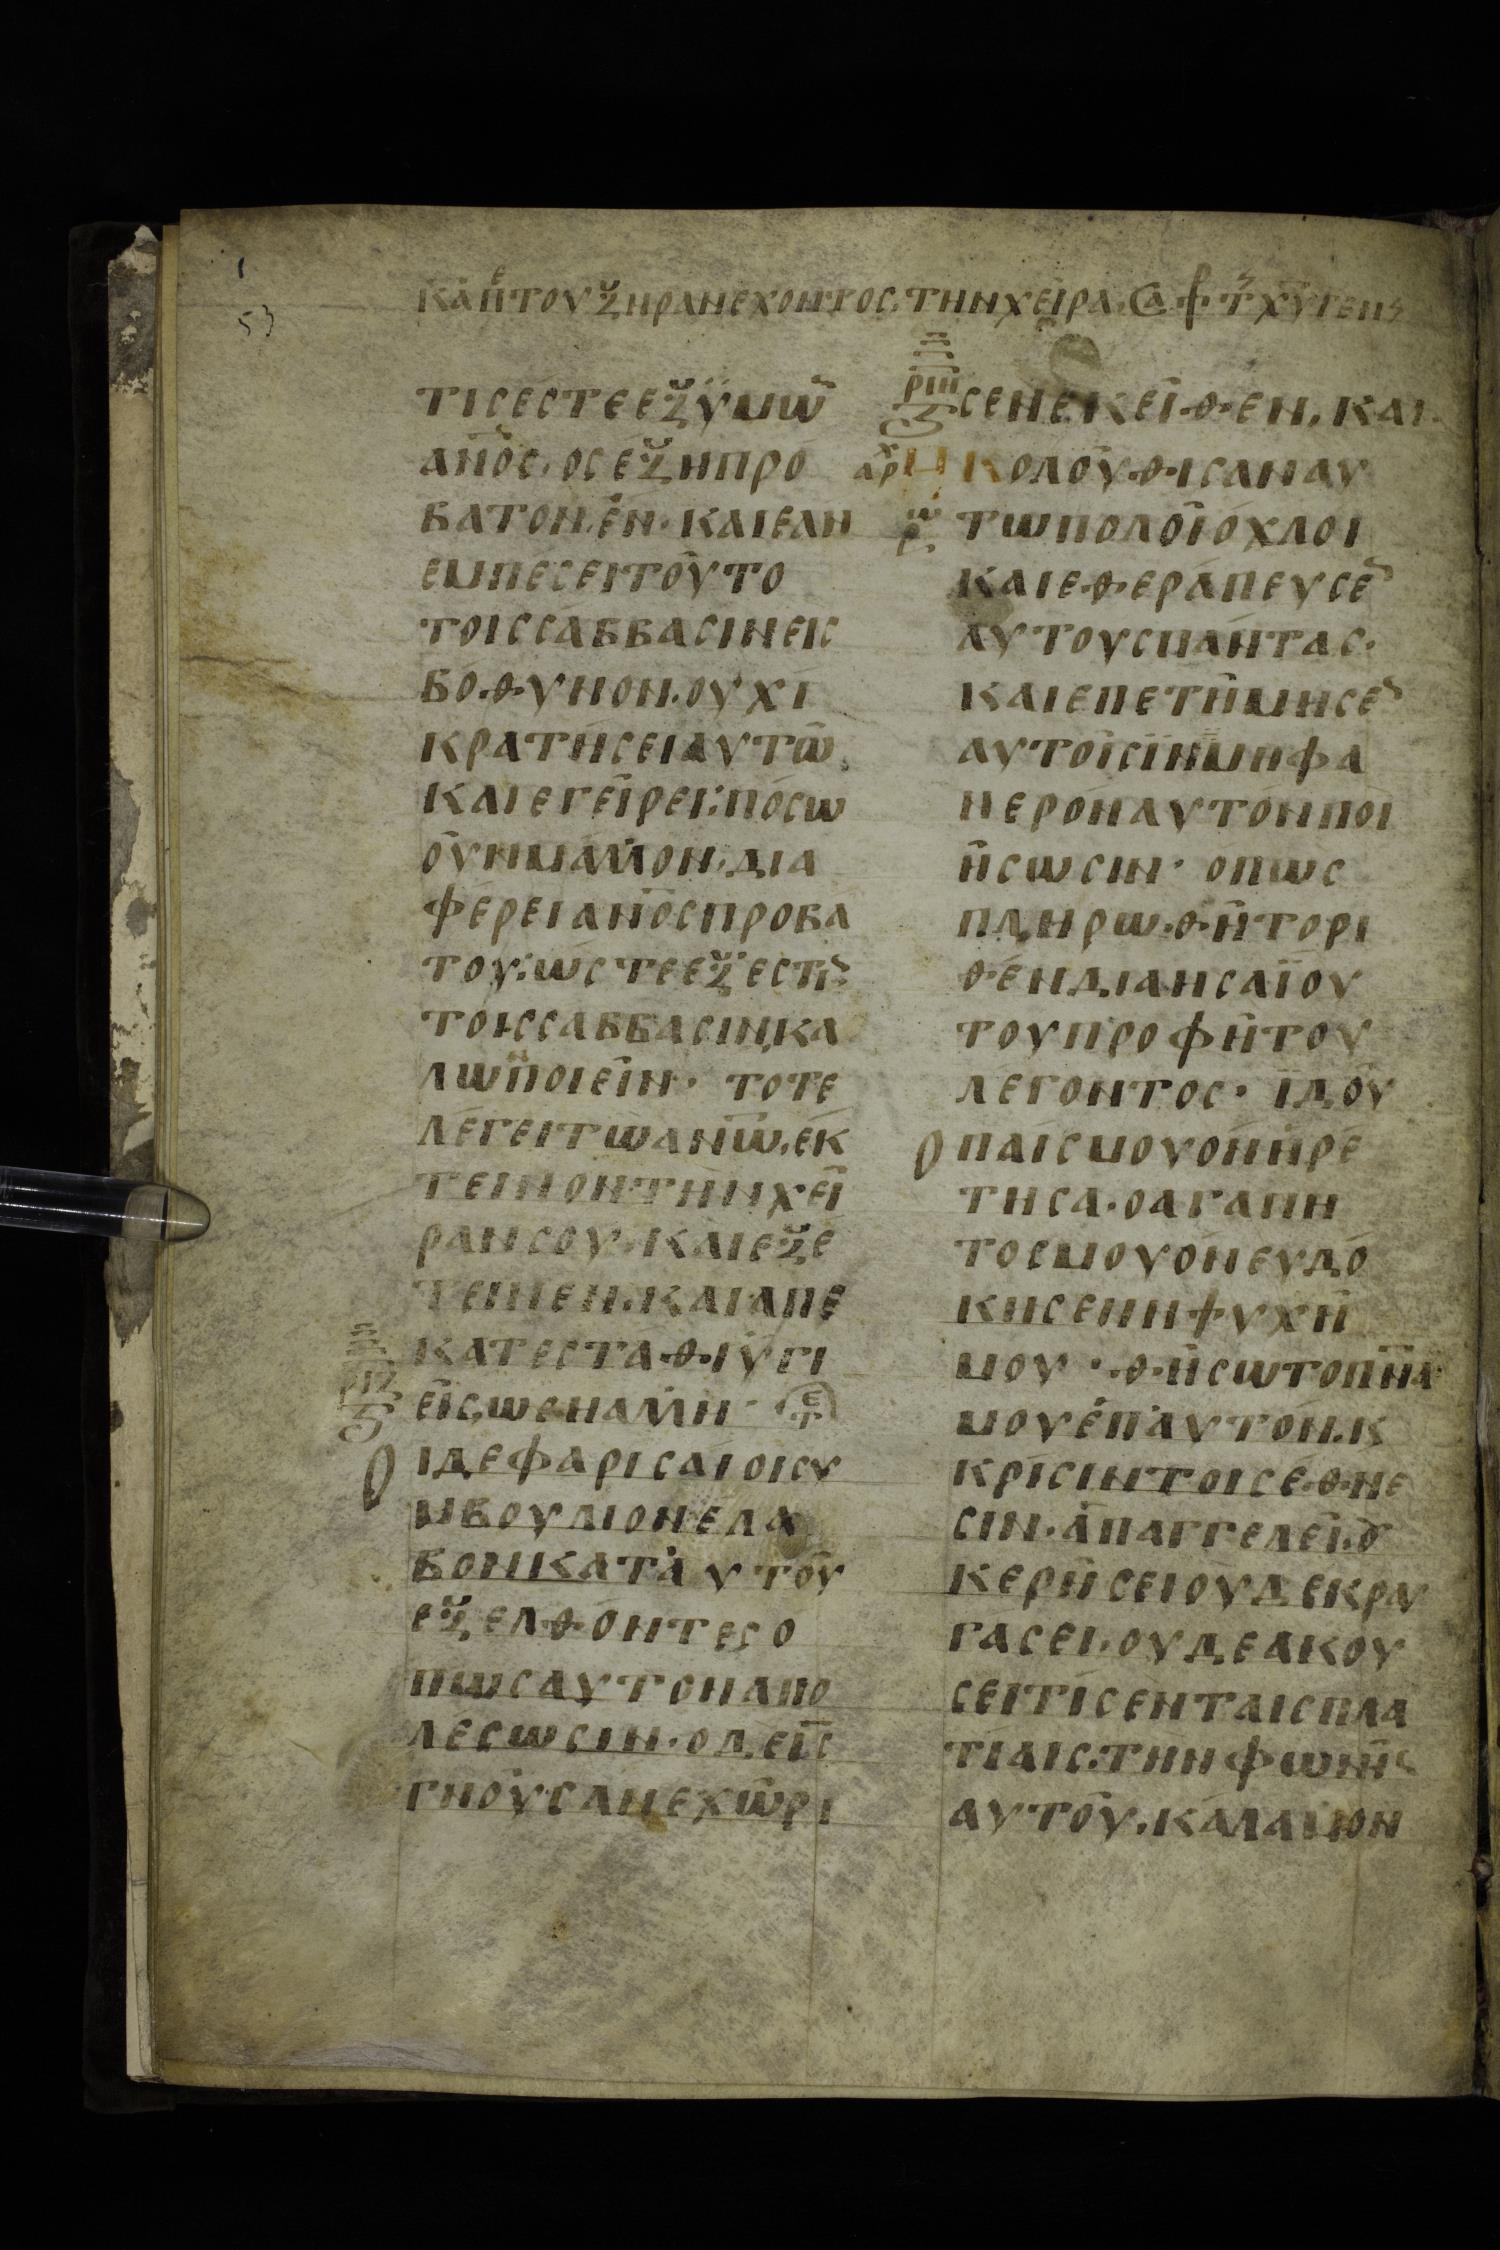 53
ΚΑΠΕ ΤΟΥ ΞΗΡΑΝ ΕΧΟΝΤΟΣ ΤΗΝ ΧΕΙΡΑ
ΤΙΣ ΕΣΤΕ ΕΞ ΥΜΩ̅
ΑΝΟΣ· ΟΣ ΕΞΗ ΠΡΟ
ΒΑΤΟΝ ΕΝ· ΚΑΙ ΕΑΝ
ΕΜΠΕΣΕΙ ΤΟΥΤΟ
ΤΟΙΣ ΣΑΒΒΑΣΙΝ ΕΙΣ
ΒΟΘΥΝΟΝ· ΟΥΧΙ
ΚΡΑΤΗΣΕΙ ΑΥΤΩ
ΚΑΙ ΕΓΕΙΡΕΙ· ΠΟΣΩ
ΟΥΝ ΜΑΛΛΟΝ· ΔΙΑ
ΦΕΡΕΙ ΑΝΟΣ ΠΡΟΒΑ
ΤΟΥ· ΩΣΤΕ ΕΞΕΣΤΙ
ΤΟΙΣ ΣΑΒΒΑΣΙΝ ΚΑ
ΛΩΣ ΠΟΙΕΙΝ· ΤΟΤΕ
ΛΕΓΕΙ ΤΩ ΑΝΩ· ΕΚ
ΤΕΙΝΟΝ ΤΗΝ ΧΕΙ
ΡΑΝ ΣΟΥ· ΚΑΙ ΕΞΕ
ΤΕΙΝΕΝ· ΚΑΙ ΑΠΕ
ΚΑΤΕΣΤΑΘΙ ΥΓΙ
ΕΙΣ ΩΣ Η ΑΛΛΗ·
ΟΙ ΔΕ ΦΑΡΙΣΑΙΟΙ ΣΥ
ΜΒΟΥΛΙΟΝ ΕΛΑ
ΒΟΝ ΚΑΤ ΑΥΤΟΥ
ΕΞΕΛΘΟΝΤΕΣ Ο
ΠΩΣ ΑΥΤΟΝ ΑΠΟ
ΛΕΣΩΣΙΝ· Ο ΔΕ ΙΣ
ΓΝΟΥΣ ΑΝΕΧΩΡΙ
ΣΕΝ ΕΚΕΙΘΕΝ· ΚΑΙ
ΗΚΟΛΟΥΘΙΣΑΝ ΑΥ
ΤΩ ΠΟΛΟΙ ΟΧΛΟΙ
ΚΑΙ ΕΘΕΡΑΠΕΥΣΕ
ΑΥΤΟΥΣ ΠΑΝΤΑΣ·
ΚΑΙ ΕΠΕΤΗΜΗΣΕ
ΑΥΤΟΙΣ ΙΝΑ ΜΗ ΦΑ
ΝΕΡΟΝ ΑΥΤΟΝ ΠΟΙ
ΗΣΩΣΙΝ· ΟΠΩΣ
ΠΛΗΡΩΘΗ ΤΟ ΡΙ
ΘΕΝ ΔΙΑ ΗΣΑΙΟΥ
ΤΟΥ ΠΡΟΦΗΤΟΥ
ΛΕΓΟΝΤΟΣ· ΙΔΟΥ
Ο ΠΑΙΣ ΜΟΥ ΟΝ ΗΡΕ
ΤΗΣΑ· Ο ΑΓΑΠΗ
ΤΟΣ ΜΟΥ ΟΝ ΕΥΔΟ
ΚΗΣΕΝ Η ΨΥΧΗ
ΜΟΥ· ΘΗΣΩ ΤΟ ΠΝΑ
ΜΟΥ ΕΠ ΑΥΤΟΝ· Κ
ΚΡΙΣΙΝ ΤΟΙΣ ΕΘΝΕ
ΣΙΝ· ΑΠΑΓΓΕΛΕΙ· Ο
ΚΕΡΗΣΕΙ ΟΥΔΕ ΚΡΑΥ
ΓΑΣΕΙ· ΟΥΔΕ ΑΚΟΥ
ΣΕΙ ΤΙΣ ΕΝ ΤΑΙΣ ΠΛΑ
ΤΙΑΙΣ· ΤΗΝ ΦΩΝΗ
ΑΥΤΟΥ· ΚΑΛΑΜΟΝ